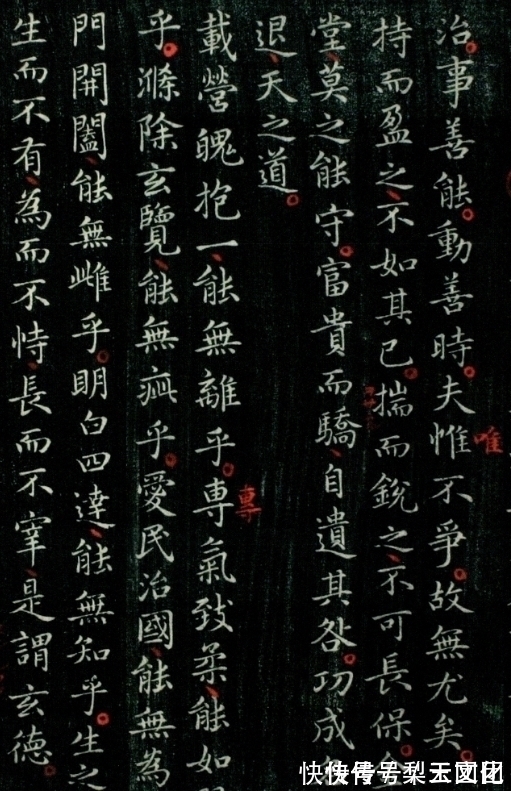 治。事善能。動善時。夫惟不爭。故無尤矣。
唯
持而盈之、不如其已。揣而銳之、不可長保。金
堂、莫之能守。富貴而驕、自遺其咎。功成
退、天之道。
載營魄抱一、能無離乎。専氣致柔、能如
專
乎。滌除玄覽、能無疵乎。愛民治國、能無為
門開闔、能無雌乎。明白四達、能無知乎。生之
生而不有、為而不恃、長而不宰、是謂玄德。